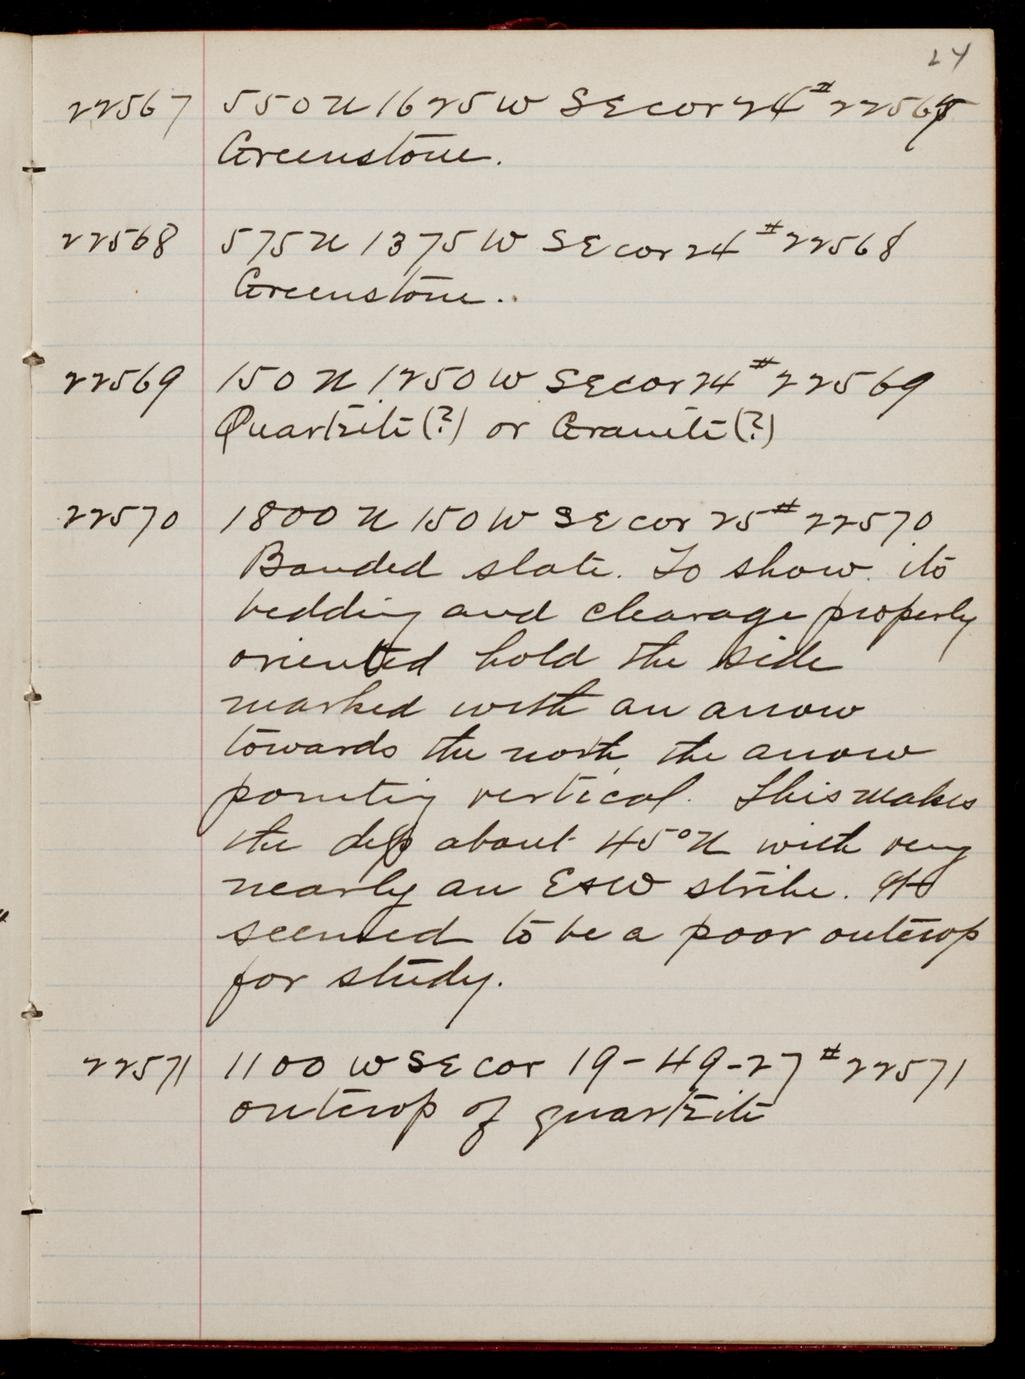 24
22567 550 N 1625 W SE cor 24 # 22567
Greenstone.
22568 575 N 1375 W SE cor 24 # 22568
Greenstone.
22569 150 N 1250 W SE cor 24 # 22569
Quartzite (?) or Granite (?)
22570 1800 N 150 W SE cor 25 # 22570
Banded slate. To show its
bedding and cleavage properly
oriented hold the side
marked with an arrow
towards the north, the arrow
pointing vertical. This makes
the dip about 45° N with very
nearly an E & W strike. It
seemed to be a poor outcrop
for study.
22571 1100 W SE cor 19-49-27 # 22571
outcrop of quartzite